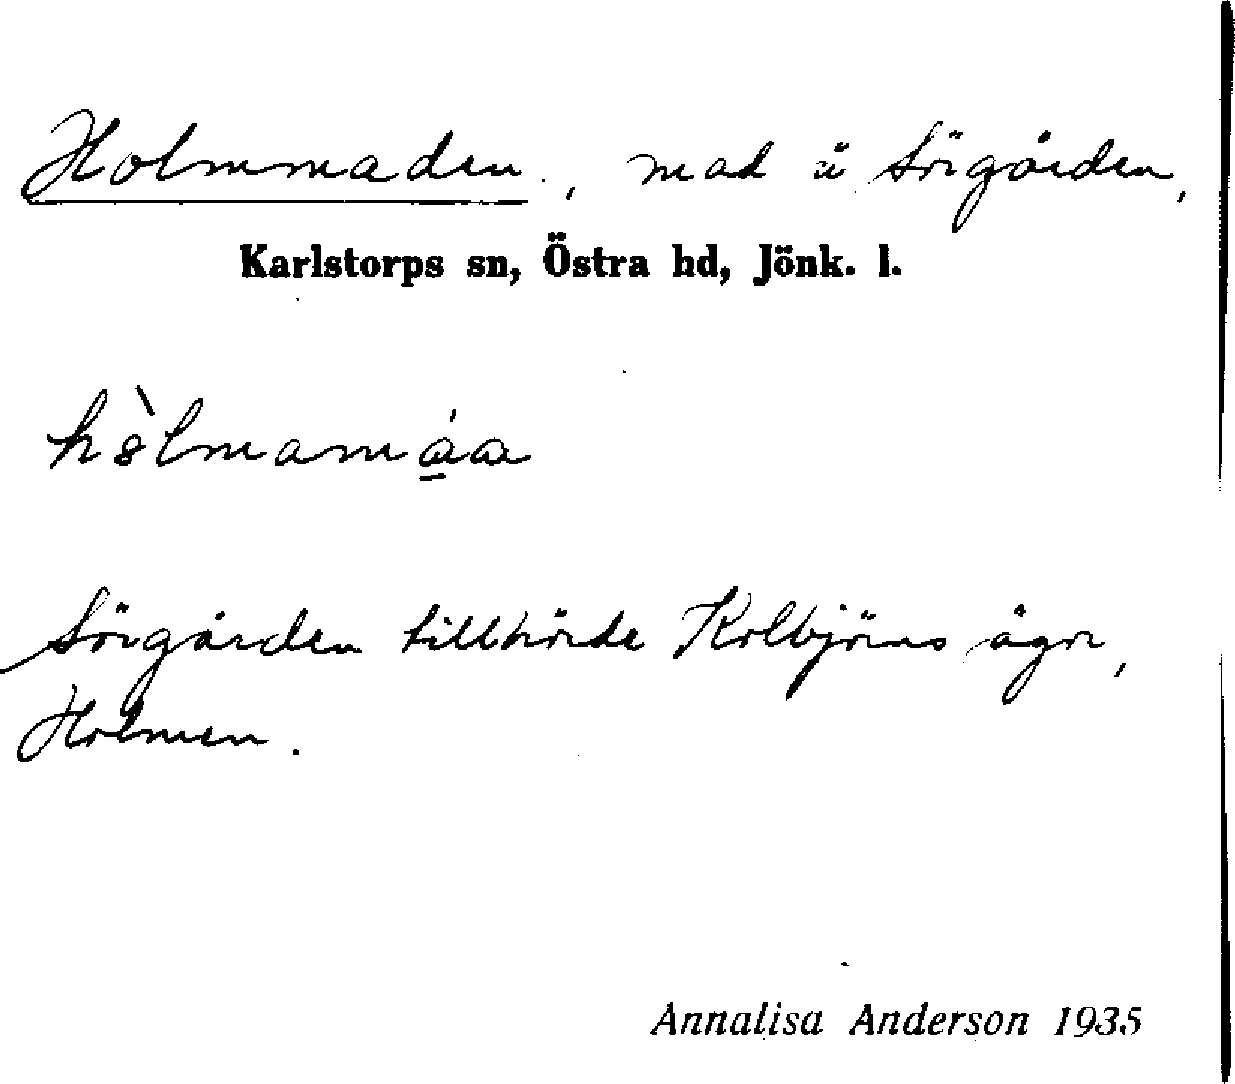 Holmmaden., mad å Sörgården,
Karlstorps sn, Östra hd, Jönk. l.
hòlmamáa
Sörgården tillhörde Kolbjörns ägor,
Holmen.
Annalisa Anderson 1935